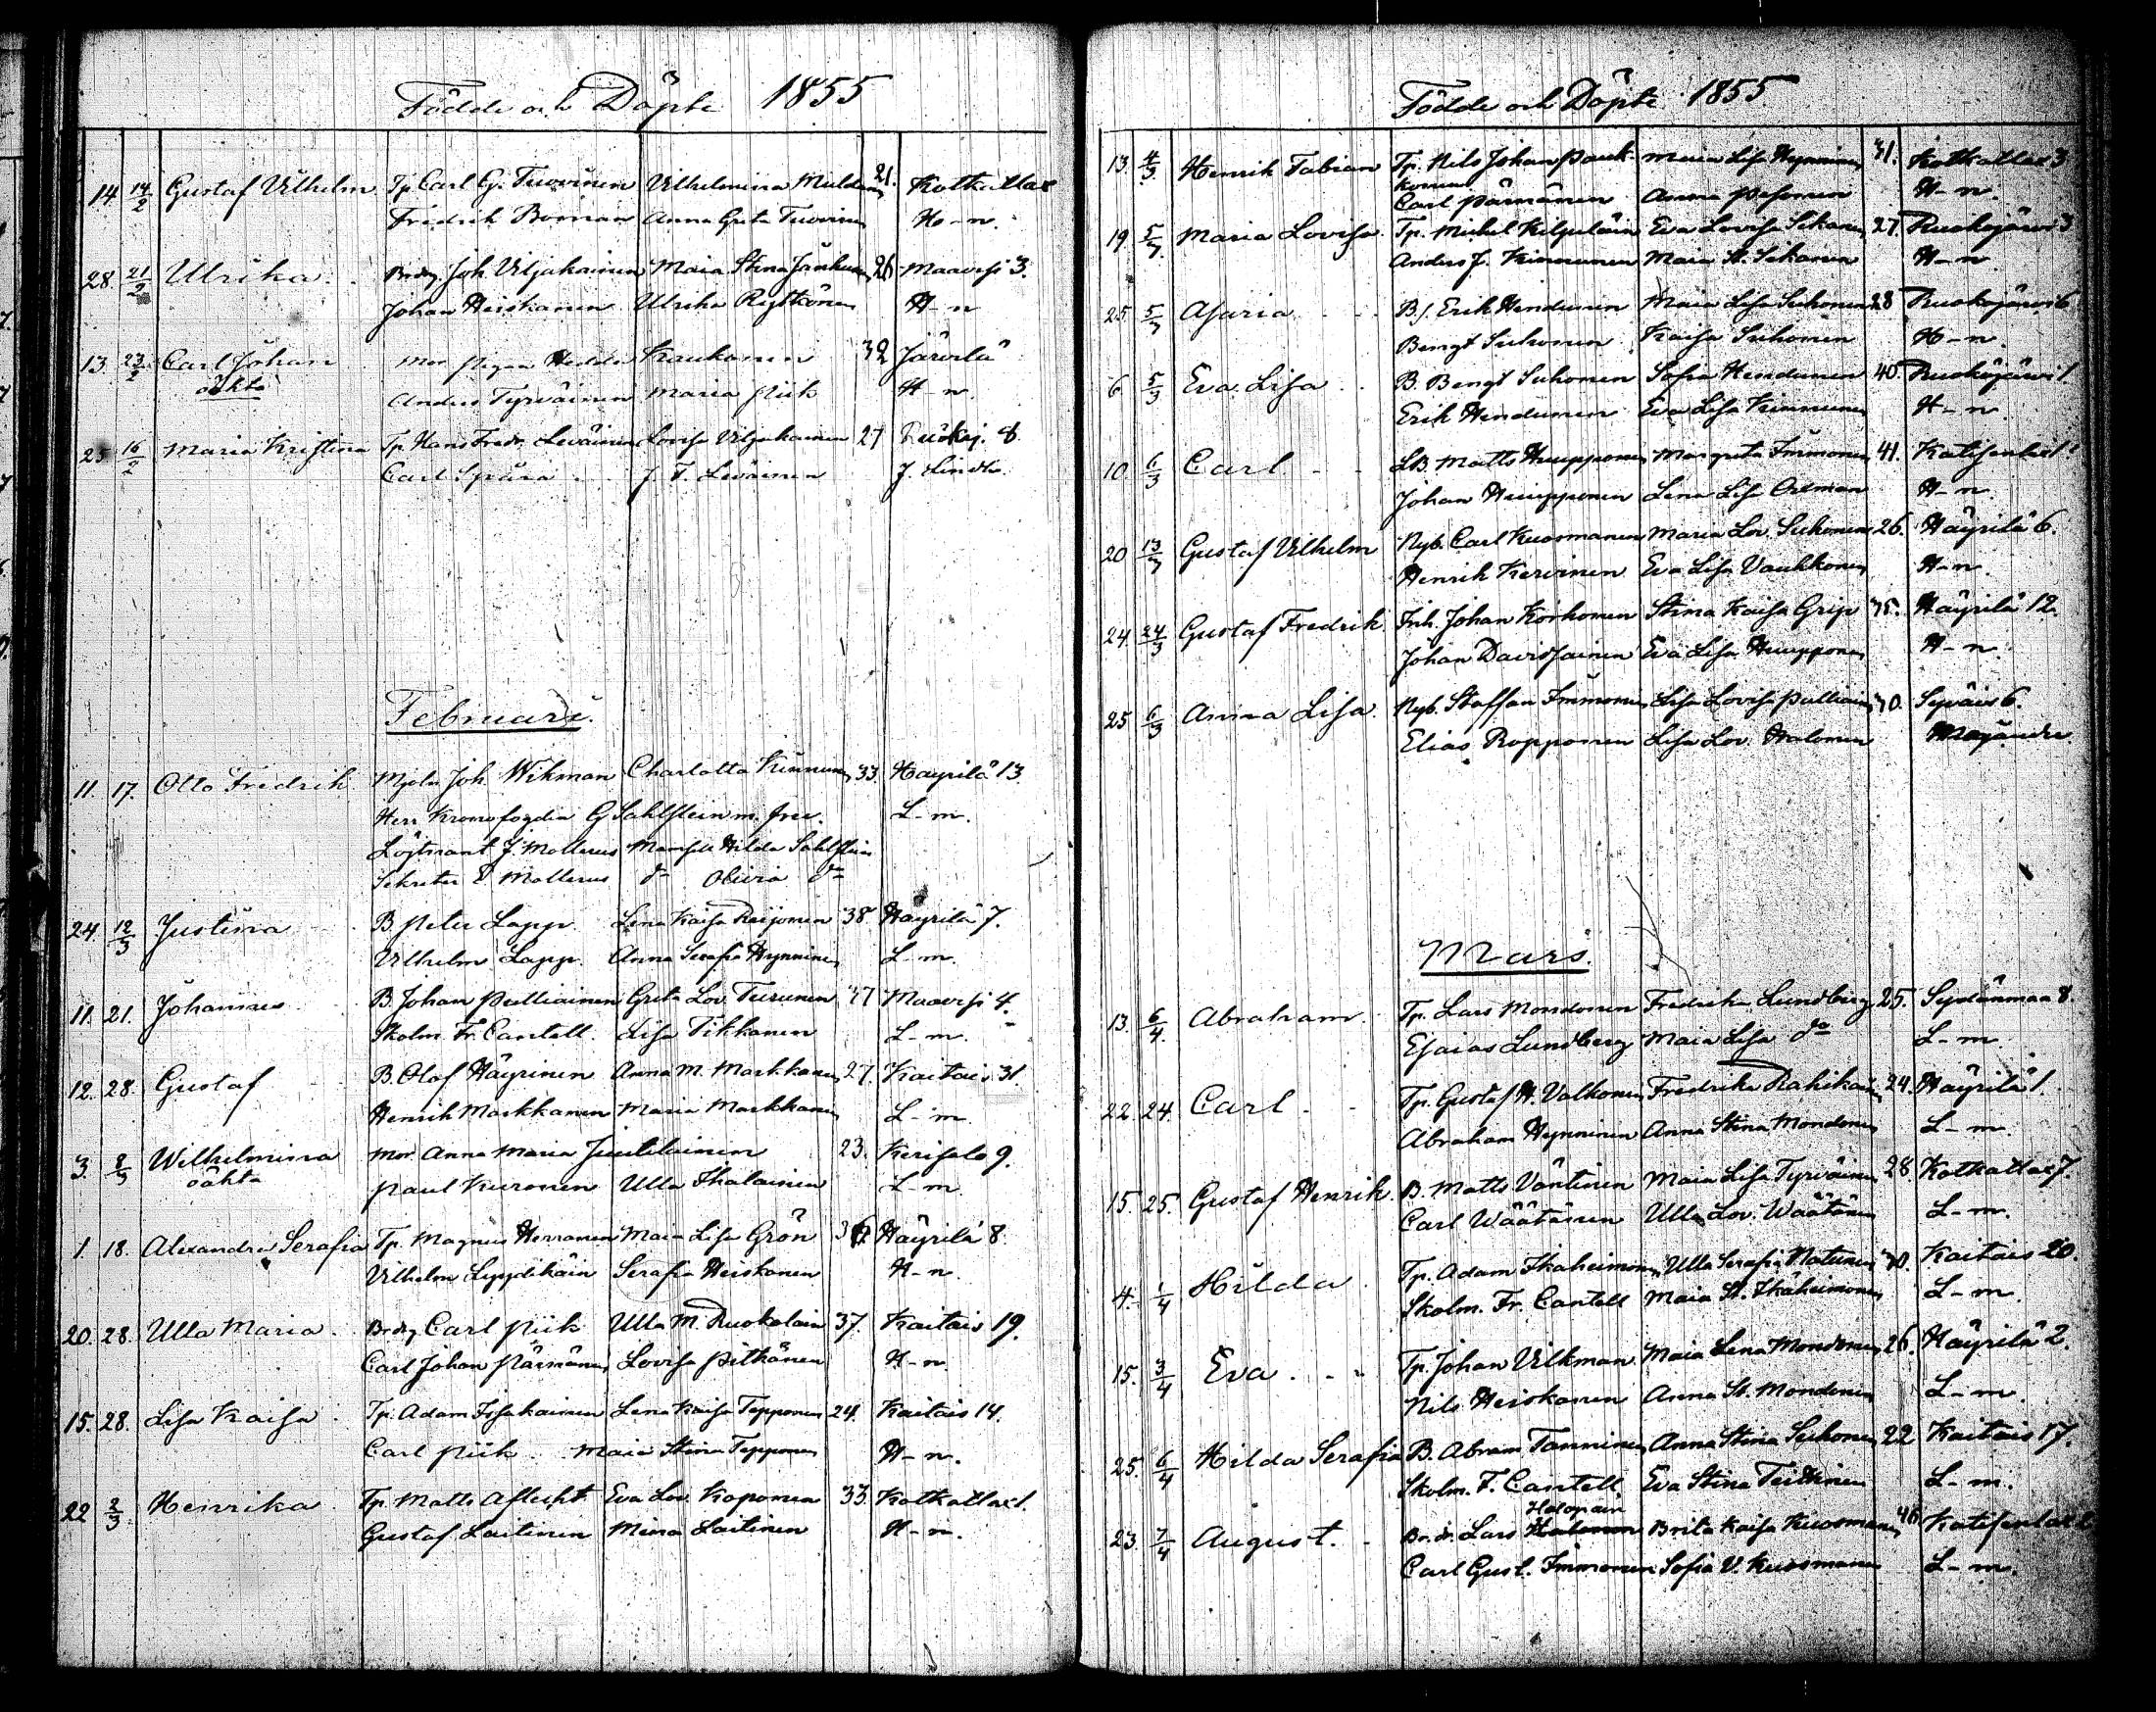 Födde och Döpte 1855
14 14/2 Gustaf Vilhelm Tp. Carl G. Tuovinen Vilhelmina 21. Kotkatlax
Fredrik Boman Anna Greta Tuovinen H-n.
28. 21/2 Ulrika Brdg. Joh. Viljakainen Maia Stina 26 Maavesi 3.
Johan Heiskanen Ulrika Rytkönen H-n
13 23/2 Carl Johan Mor pigan Hedda Kaukanen 32 Järvilä
oäkta Anders Tyrväinen Maria Piik H-n.
25 16/2 Maria Kristina Tp. Hans Fredr. Leväinen Lovisa Viljakainen 27 Ruokoj. 8.
Carl J. F. Leväinen J. Lindh.
Februari.
11. 17. Otto Fredrik Mjoln. Joh. Wikman Charlotta Kinnunen 33 Häyrilä 13
Herr Kronofogden G Sahlstein m. fru. L-m.
Löjtnant J. Mollerus Mamsell Hilda Sahlstein
Sekreter E Mollerus do Olivia do
24. 12/3 Justina B. Peter Lapp. Lena Kaisa Reijonen 38 Häyrilä 7.
Vilhelm Lapp. Anna Serafia Hynninen L-m.
11. 21. Johannes B. Johan Pulliainen Greta Lov. Turunen 37 Maavesi 4.
Skolm. Fr. Cantell. Lisa Tikkanen L-m.
12. 28. Gustaf B. Olof Häyrinen Anna M. Markkanen 27. Kaitais 31.
Henrik Markkanen Maria Markkanen L-m.
3. 8/3 Wilhelmina Mor. Anna Maria Juutilainen 23. Kerisalo 9.
oäkta Paul Kuronen Ulla Ihalainen L-m.
1. 18. Alexandra Serafia Tp. Magnus Herranen Maia Lisa Grön 36 Häyrilä 8.
Vilhelm Lyydikäin Serafia Heiskanen H-n.
20. 28. Ulla Maria. Brdg. Carl Piik Ulla M. Ruokolain 37. Kaitais 19.
Carl Johan Pärnänen Lovisa Pitkänen H-n.
15. 28. Lisa Kaisa. Tp. Adam Issakainen Lena Kaisa Tepponen 24. Kaitais 14.
Carl Piik. Maia Stina Tepponen H-n.
22 2/3 Henrika Tp. Matts Aflecht Eva Lov. Koponen 33. Kotkatlax 1.
Gustaf Laitinen Mina Laitinen H-n.
Födde och Döpte 1855
13. 4/3 Henrik Fabian Tp. Nils Johan Pauk- Maia Lisa Hynninen 31. Kotkatlax 3
konen
Carl Pärnänen Anna Pesonen H-n.
19. 5/3 Maria Lovisa. Tp. Michel Kilpeläin Eva Lovisa Sikanen 27 Ruokojärvi 3
Anders J. Kinnunen Maia St. Sikanen H-n
25 5/3 Asaria Bs. Erik Hendunen Maia Lisa Suhonen 28 Ruokojärvi 6
Bengt Suhonen Kaisa Suhonen H-n.
6. 5/3 Eva Lisa B. Bengt Suhonen Sofia Hendunen 40. Ruokojärvi 1.
Erik Hendunen Eva Lisa Kinnunen H-n.
10. 6/3 Carl LB. Matts Huupponen Margreta Immonen 41. Katisenlax 1
Johan Huupponen Lena Lisa H-n.
20 13/3 Gustaf Vilhelm Nyb. Carl Kuosmanen Maria Lov. Suhonen 26. Häyrilä 6.
Henrik Kervinen Eva Lisa Vauhkonen H-n.
24. 24/3 Gustaf Fredrik. Inh. Johan Korhonen Stina Kaisa Grip 35. Häyrilä 12.
Johan Davidsainen Eva Lisa Huupponen H-n.
25 6/3 Anna Lisa. Nyb. Staffan Immonen Lisa Lovisa Pulliain 30. Syväis 6.
Elias Ropponen Lisa Lov. Halonen Majander.
Mars.
13. 6/4. Abraham. Tp. Lars Mondonen Fredrika Lundberg 25. Sydänmaa 8.
Esaias Lundberg Maia Lisa do L-m.
22. 24. Carl Tp. Gustaf H. Valkonen Fredrika Rahikain 24. Häyrilä 1.
Abraham Hynninen Anna Stina Mondonen L-m.
15. 25. Gustaf Henrik. B. Matts Väntinen Maia Lisa Tyrväinen 28. Kotkatlax 7.
Carl Wäätänen Ulla Lov. Wäätänen L-m.
4. 1/4 Hilda. Tp. Adam Ikäheimonen Ulla Serafia Natunen 30. Kaitais 20.
Skolm. Fr. Cantell Maia St. Ikäheimonen L-m.
15. 3/4 Eva Tp. Johan Vilkman. Maia Lena Mondonen 26. Häyrilä 2.
Nils Heiskanen Anna St. Mondonen L-m.
25. 6/4 Hilda Serafia B. Abram Tanninen Anna Stina Suhonen 22 Kaitais 17.
Skolm. F. Cantell Eva Stina L-m.
Holopain
23. 7/4 August. Brdr. Lars Halonen Brita Kaisa Kuosmanen 46 Katisenlax
Carl Gust. Immonen Sofia V. Kuosmanen L-m.